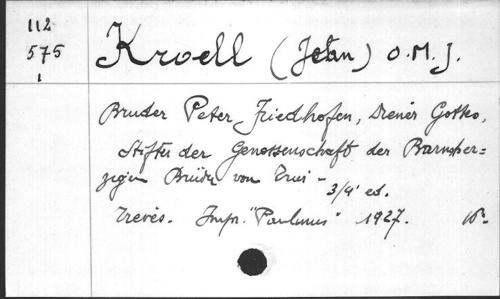 112
575
1
Kroell (Jean) O.M.J.
Bruder Peter Friedhofen, Diener Gottes,
Stifter der Genossenschaft der Barmher=
zigen Brüder von Trier - 3/4e ed.
Treves. Impr. "Paulinus" 1927.